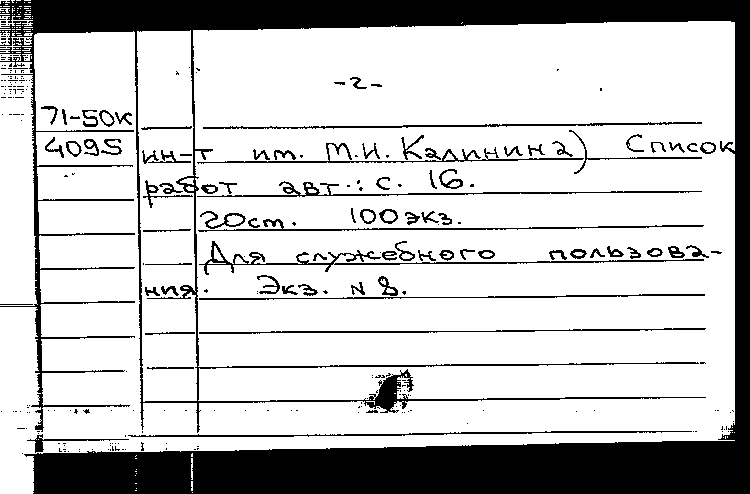 -2-
71-50к
4095
ин-т им. М.И. Калинина) Список
работ авт.: с. 16.
20см. 100экз.
Для служебного пользова-
ния. Экз. N 8.